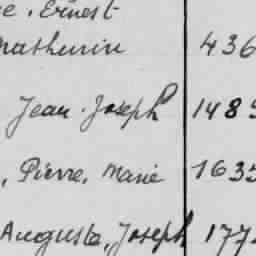 e. Ernest
Mathurin 436
Jean. Joseph 1485
, Pierre, Marie 1635
Auguste, Joseph 177